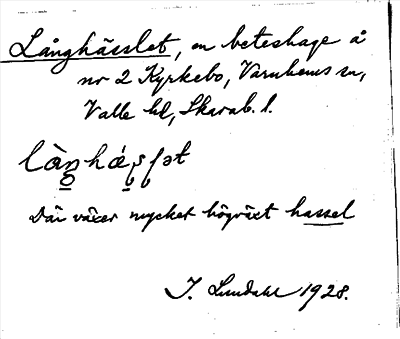 Långhässlet, en beteshage å
nr 2 Kyrkebo, Varnhems sn,
Valle hd, Skarab. l.
Där växer mycket högväxt hassel
I. Lundahl 1928.